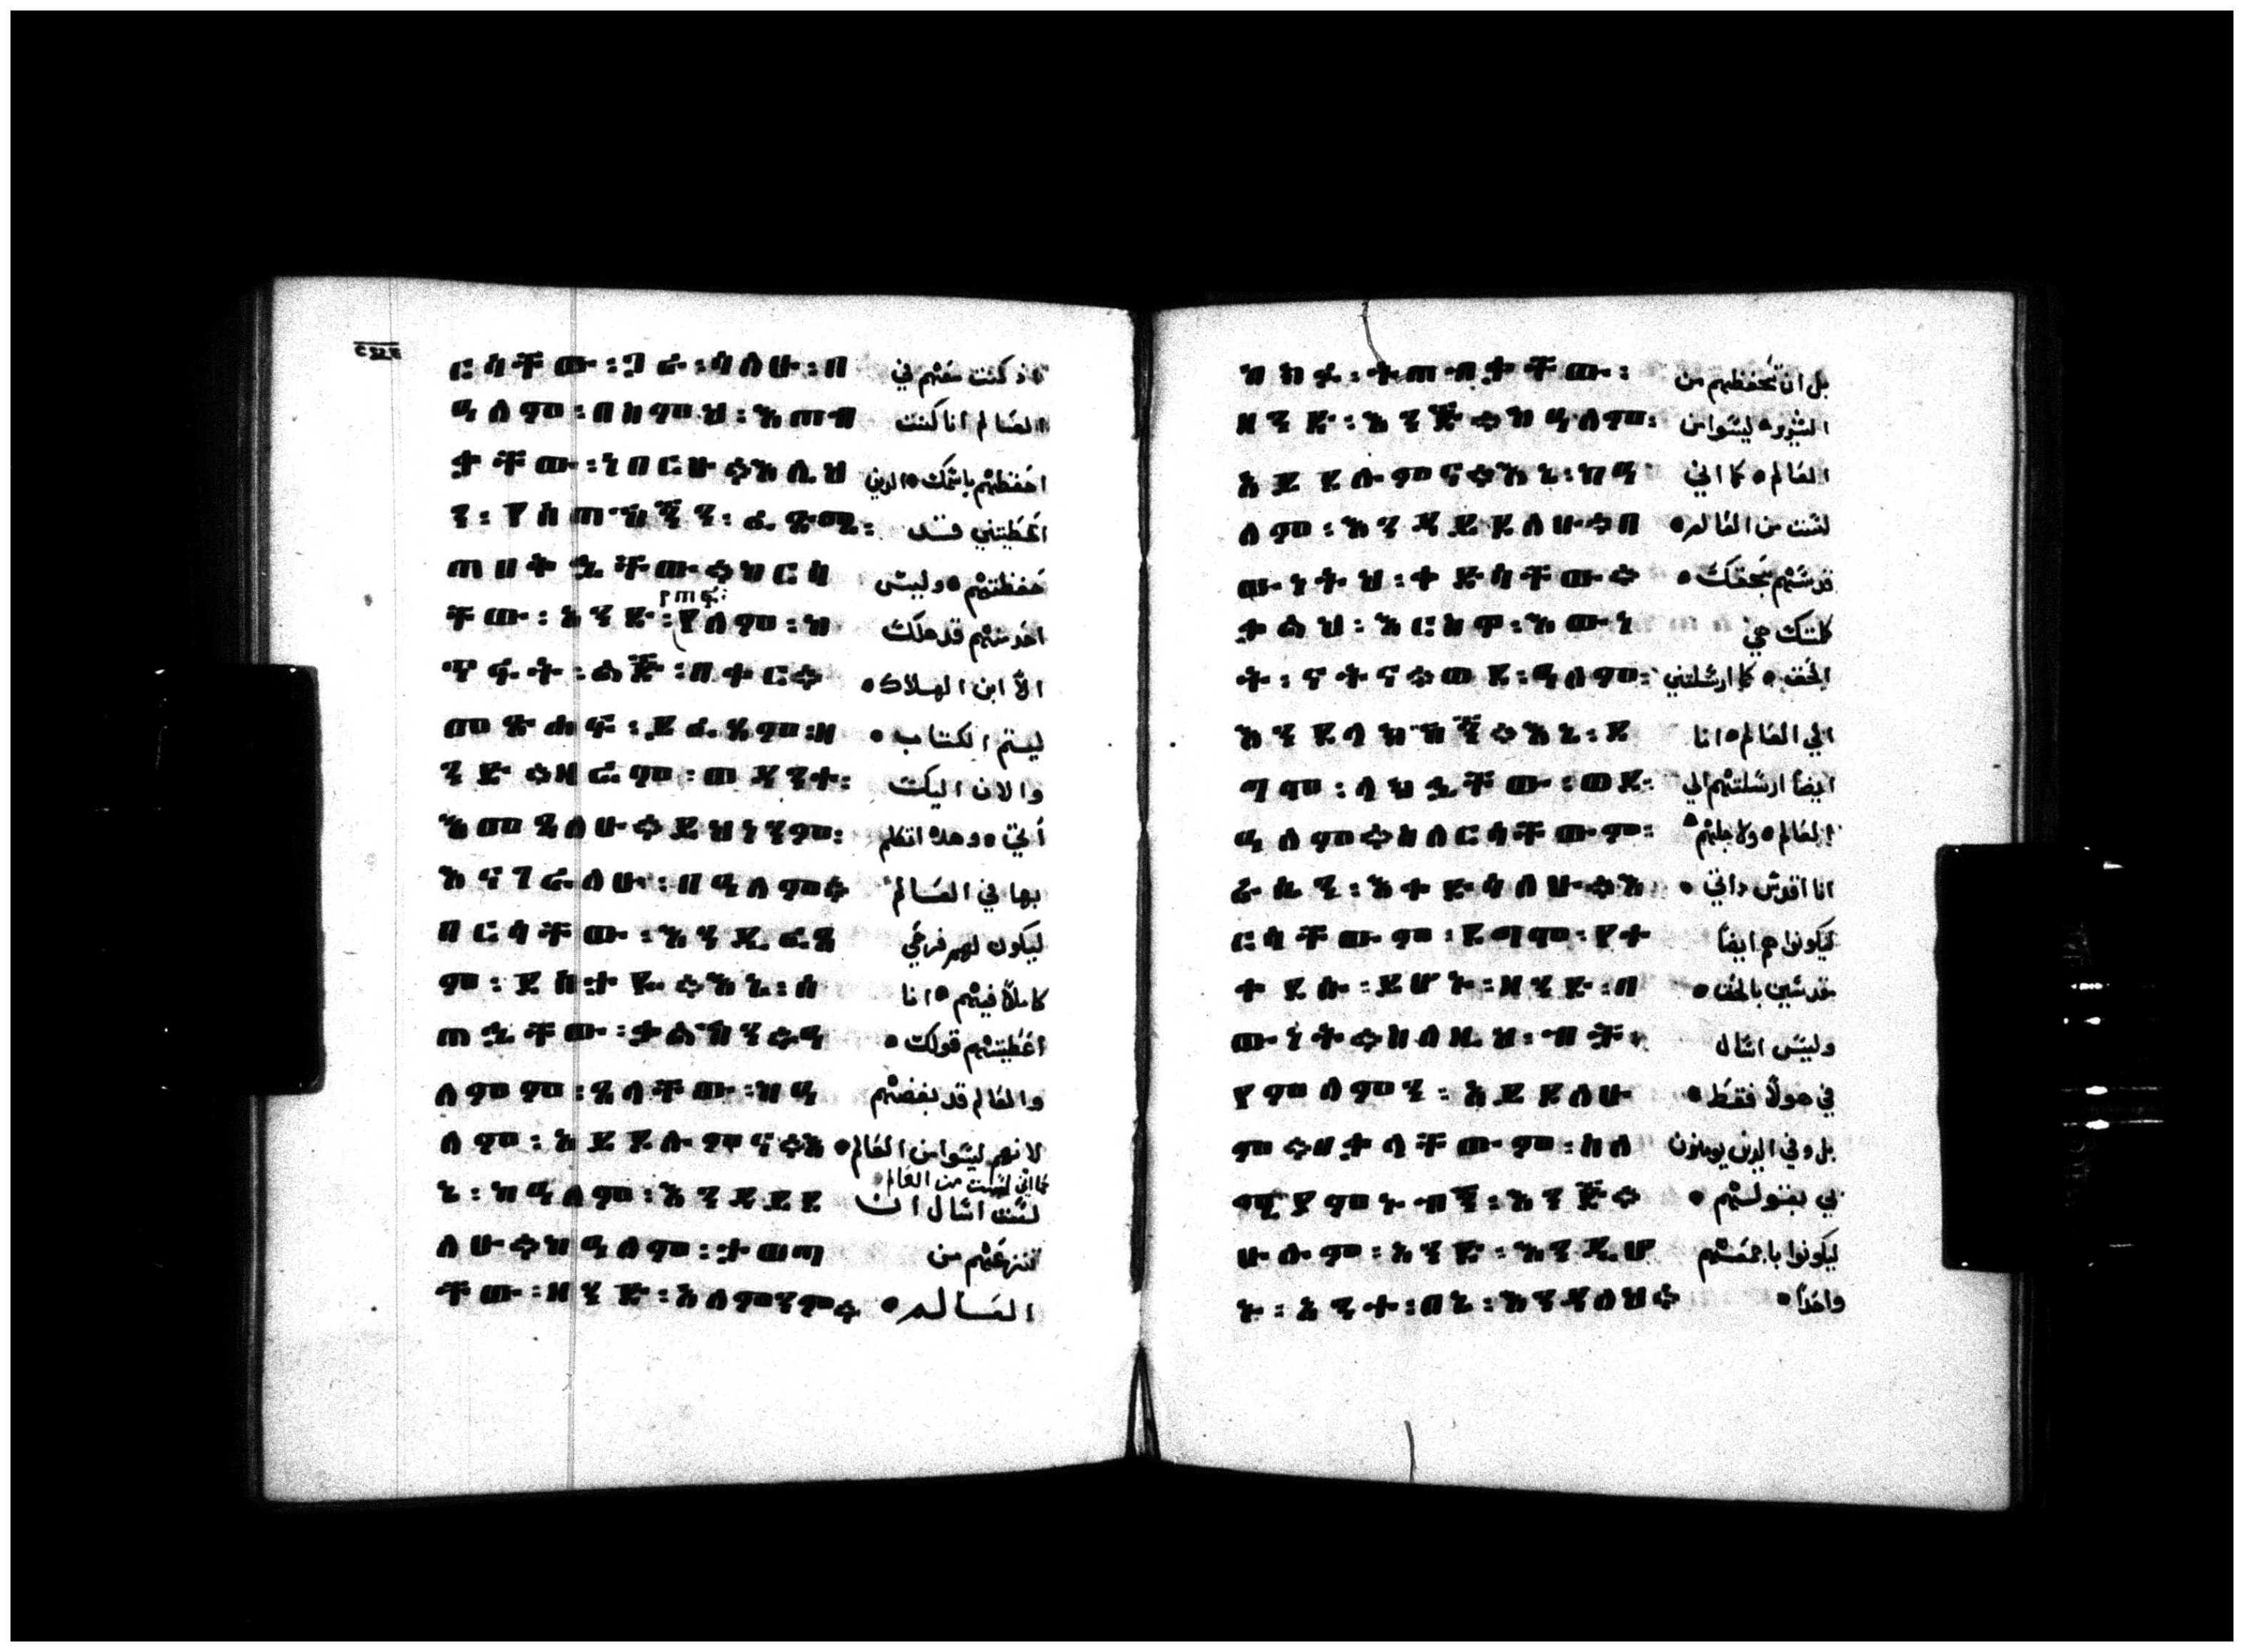 ርሳቸው፡ጋራ፡ሳለሁ፡በ اذ كنت معهم في
ዓለም፡በስምህ፡እጠብ العالم انا كنت
ቃቸው፡ነበርሁ።እሊህ احفظهم باسمك ه الدين
ን፡የሰጠኸኝን፡ፈጽሜ፡ اعطيتني قد
ጠበቅኋቸው።ከርሳ حفظتهم ه وليس
የጠፋ፡
ቸው፡አንድ፡የለም፡ከ احد منهم قد هلك
ጥፋት፡ልጅ፡በቀር። الا ابن الهلاك ه
መጽሐፍ፡ይፈጸም፡ዘ ليتم الكتاب ه
ንድ።ዛሬም፡ወዳንተ፡ والان اليك
እመጻለሁ።ይህነንም፡ اتي ه وهدا اتكلم
እናገራለሁ፡በዓለም። بها في العالم
በርሳቸው፡እንዲፈጸ ليكون لهم فرحي
ም፡ደስታዬ።እኔ፡ሰ كاملا فيهم ه انا
ጠኋቸው፡ቃልኽን።ዓ اعطيتهم قولك ه
ለምም፡ጸላቸው፡ከዓ والعالم قد بغضهم
ለም፡አይደሉምና።እ لانهم ليسوا من العالم ه
كما اني لست من العالم
ኔ፡ከዓለም፡እንዳይደ لست اسال ان
ለሁ።ከዓለም፡ታወጣ تنزعهم من
ቸው፡ዘንድ፡አለምንም። العالم ه
ከክፉ፡ትጠብቃቸው፡ بل ان تحفظهم من
ዘንድ፡እንጅ።ከዓለም፡ الشرير ه ليسوا من
አይደሉምና።እኔ፡ከዓ العالم ه كما اني
ለም፡እንዳይደለሁ።በ لست من العالم ه
ውነትህ፡ቀድሳቸው። قدسهم بحقك ه
ቃልህ፡እርስዋ፡እውነ كلمتك هي
ት፡ናትና።ወደ፡ዓለም፡ الحق ه كما ارسلتني
እንደላክኸኝ።እኔ፡ደ الي العالم ه انا
ግሞ፡ላክኋቸው፡ወደ፡ ايضا ارسلتهم الي
ዓለም።ስለርሳቸውም፡ العالم ه ولاجلهم
ራሴን፡እቀድሳለሁ።እ انا اقدس داتي ه
ርሳቸውም፡ደግሞ፡የተ ليكونوا هم ايضا
ቀደሱ፡ይሆኑ፡ዘንድ፡በ مقدسين بالحق ه
ውነት።ስለዚህ፡ብቻ፡ وليس اسال
የምለምን፡አይደለሁ في هولا فقط ه
ም።በቃላቸውም፡ስለ بل وفي الدين يومنون
ሚያምኑብኝ፡እንጅ። بي بقولهم ه
ሁሉም፡አንድ፡እንዲሆ ليكونوا باجمعهم
ኑ፡አንተ፡በኔ፡እንዳለህ። واحدا ه